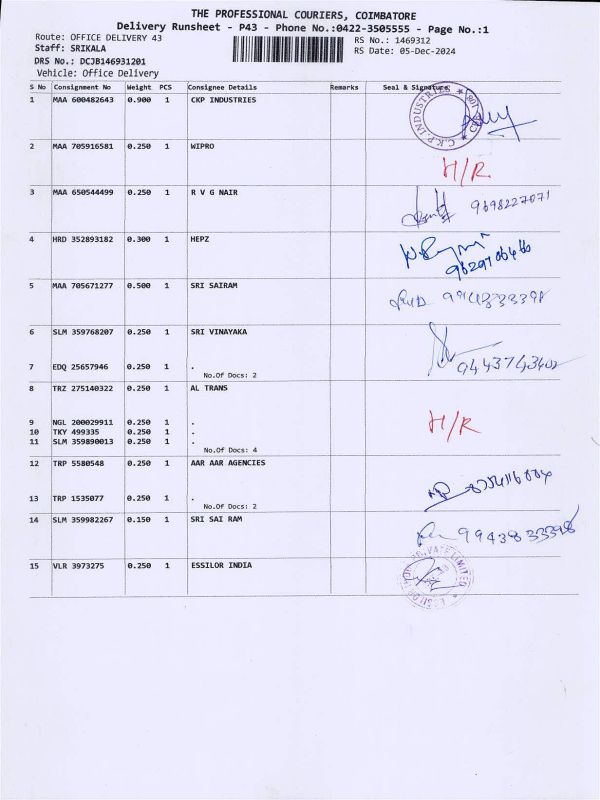 THE PROFESSIONAL COURIERS, COIMBATORE
Delivery Runsheet - P43 - Phone No.:0422-3505555 - Page No.:1
Route: OFFICE DELIVERY 43
RS No.: 1469312
Staff: SRIKALA
RS Date: 05-Dec-2024
DRS No.: DCJB146931201
Vehicle: Office Delivery
S No Consignment No Weight PCS Consignee Details Remarks Seal & Signature
1 MAA 600482643 0.900 1 CKP INDUSTRIES
C.K.P INDUSTRIES
2 MAA 705916581 0.250 1 WIPRO
H/R
3 MAA 650544499 0.250 1 R V G NAIR
9698227071
4 HRD 352893182 0.300 1 HEPZ
5 MAA 705671277 0.500 1 SRI SAIRAM
6 SLM 359768207 0.250 1 SRI VINAYAKA
9443743402
7 EDQ 25657946 0.250 1 .
No.Of Docs: 2
8 TRZ 275140322 0.250 1 AL TRANS
H/R
9 NGL 200029911 0.250 1 .
10 TKY 499335 0.250 1 .
11 SLM 359890013 0.250 1 .
No.Of Docs: 4
12 TRP 5580548 0.250 1 AAR AAR AGENCIES
13 TRP 1535077 0.250 1 .
No.Of Docs: 2
14 SLM 359982267 0.150 1 SRI SAI RAM
9943833398
15 VLR 3973275 0.250 1 ESSILOR INDIA
PRIVATE LIMITED